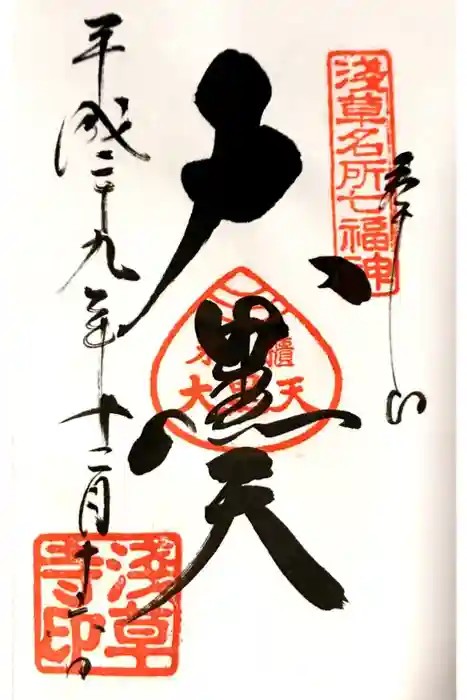 浅草名所七福神
奉拝
大黒天
米櫃
大黒天
平成二十九年十二月十六日
浅草寺印